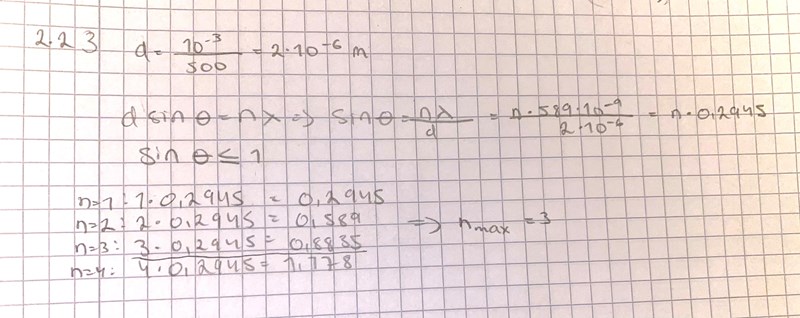 2.23 d = 10⁻³/500 = 2·10⁻⁶ m
d sin θ = nλ => sin θ = nλ/d = n·589·10⁻⁹/2·10⁻⁶ = n·0,2945
sin θ ≤ 1
n=1: 1·0,2945 = 0,2945
n=2: 2·0,2945 = 0,589 => nmax = 3
n=3: 3·0,2945 = 0,8835
n=4: 4·0,2945 = 1,178